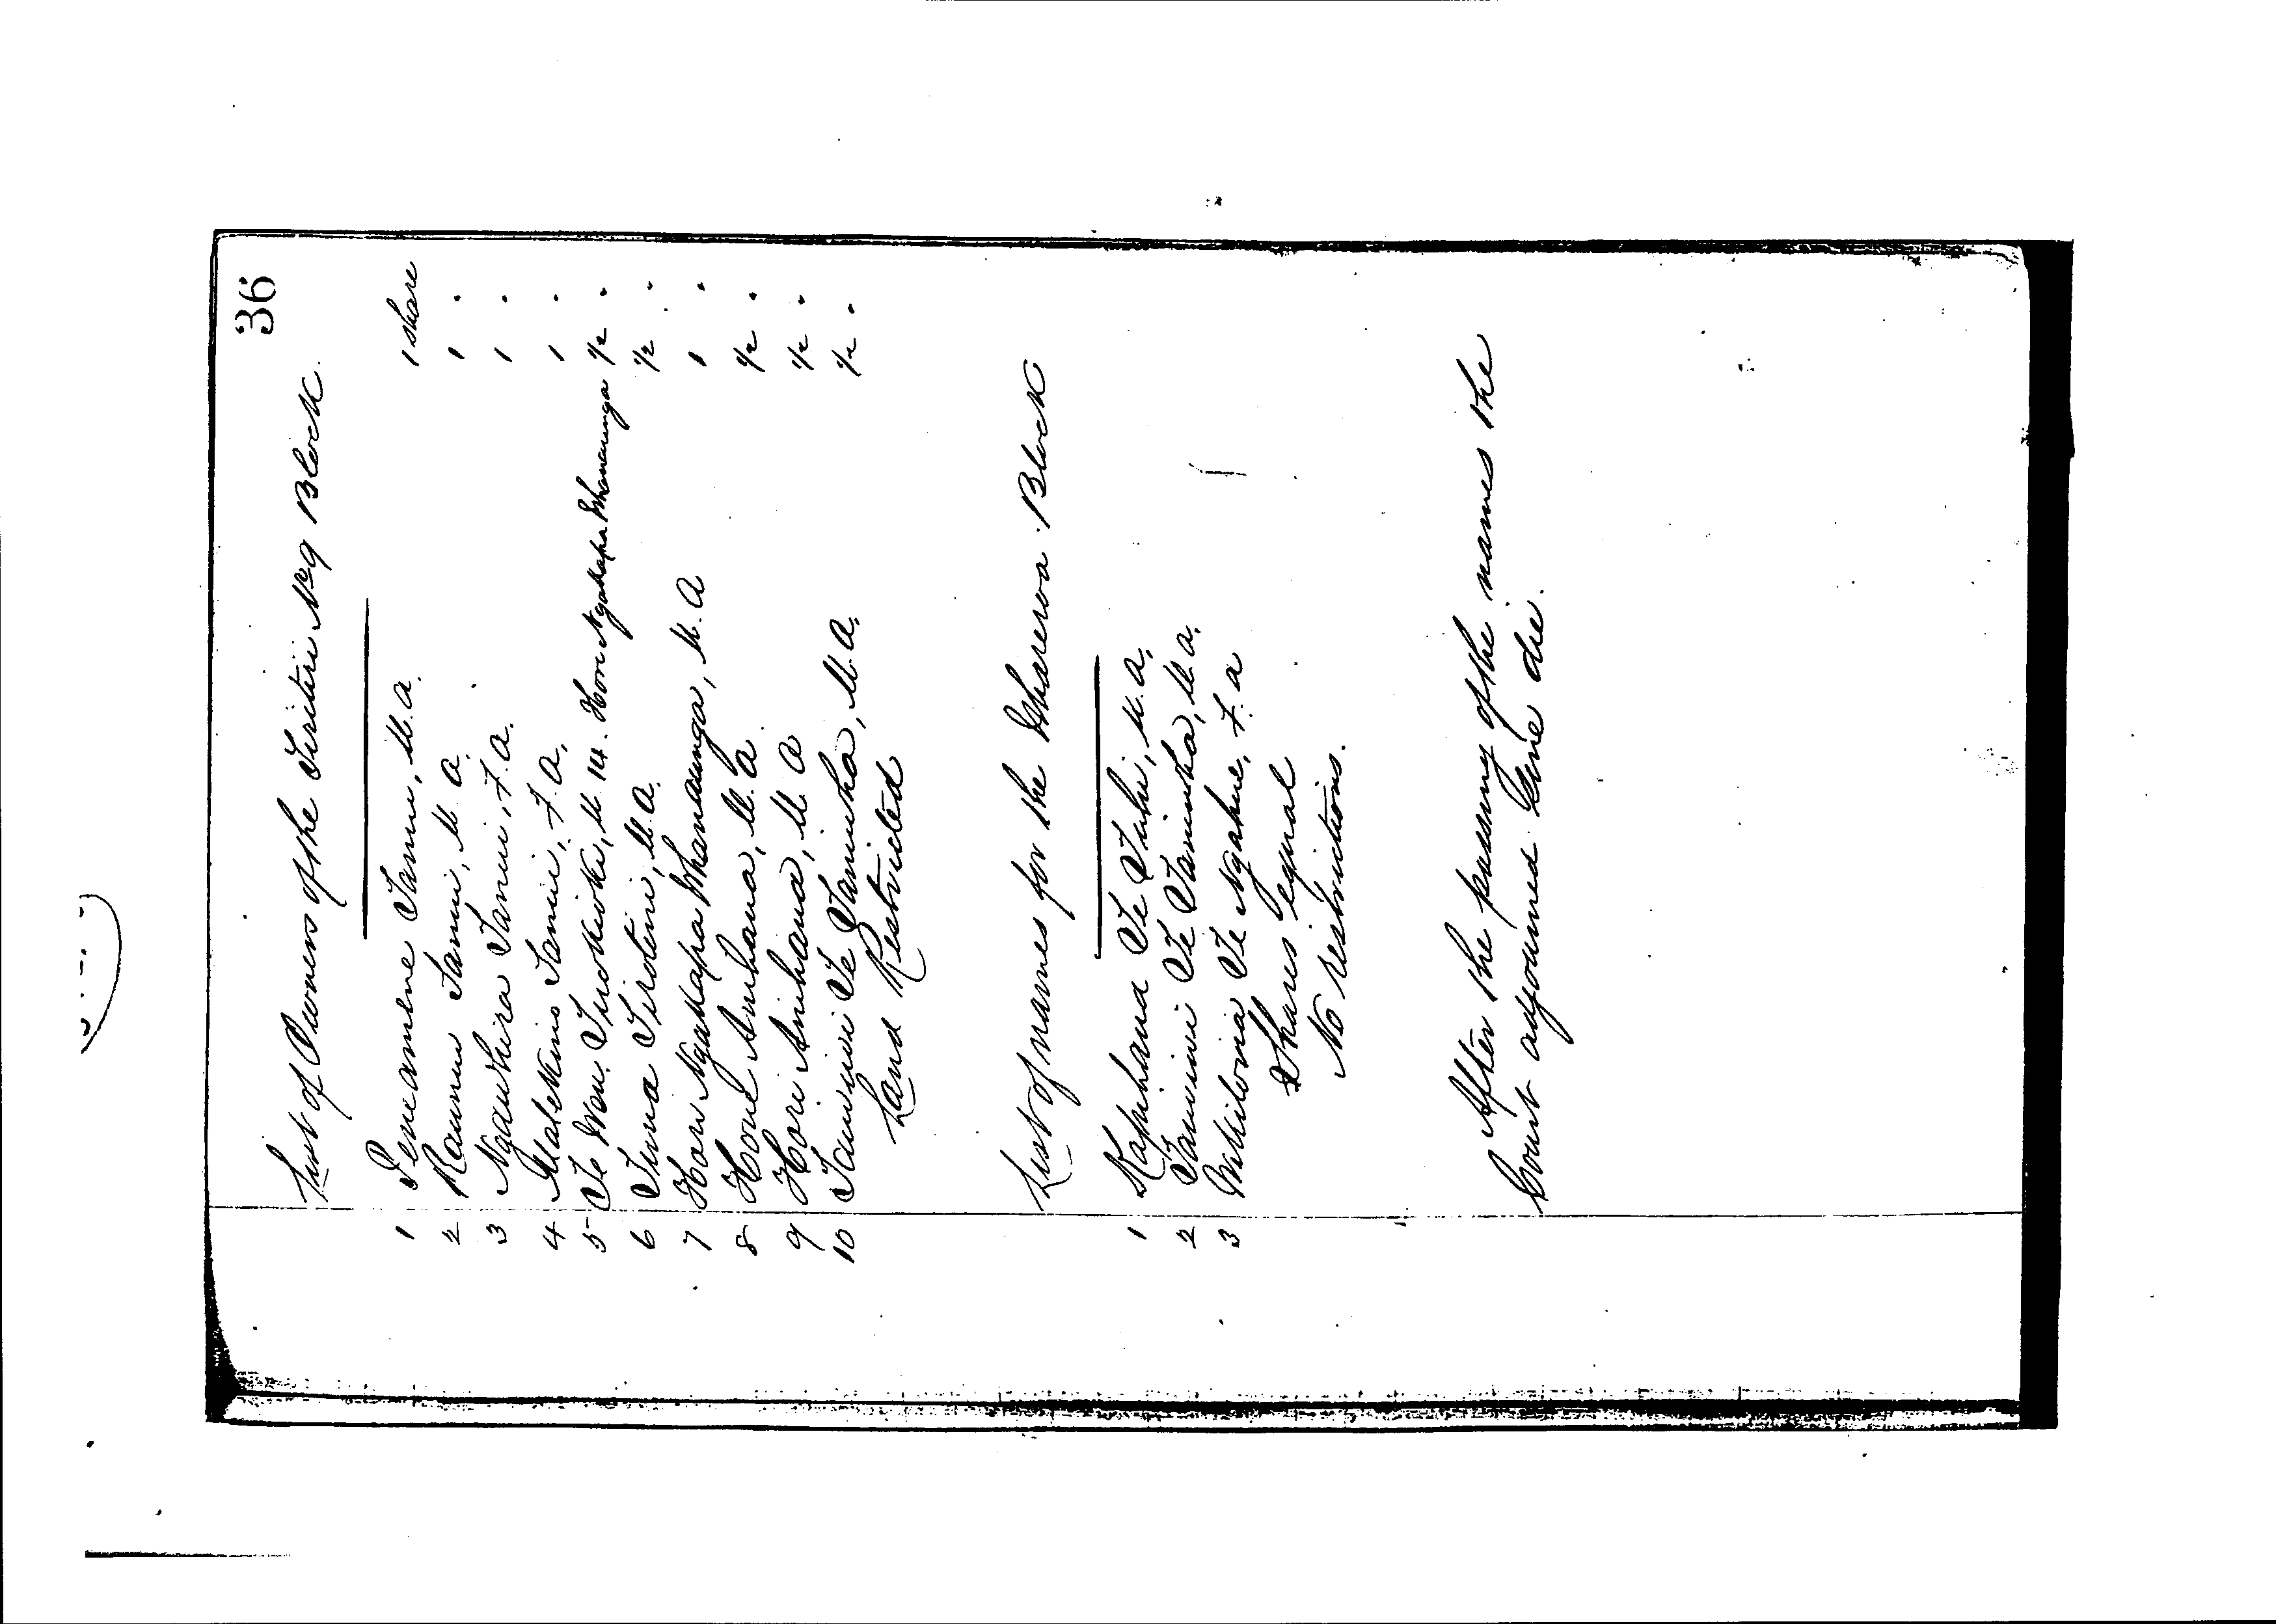 36
List of Owners of the Tiritiri No 9 Block.
1 Peneamene Tanui, M.A. 1 share
2 Raumu Tanui, M.A. 1 "
3 Ngawhira Tanui, F.A. 1 "
4 Matekino Tanui, F.A. 1 "
5 Te Weu Tirokoki, M. 14. Hori Ngakapa Whanaunga 1/2 "
6 Tirua Tirotini, M.A. 1/2 "
7 Hori Ngakapa Whanaunga, M.A 1 "
8 Hone Anihana, M.A. 1/2 "
9 Hori Anihana, M.A 1/2 "
10 Tawiwi Te Taniwha, M.A. 1/2 "
Land Restricted
List of names for the Whareroa Block
1 Kapihana Te Tuhi, M.A.
2 Tawiwi Te Taniwha, M.A.
3 Mihitoria Te Ngahue, F.A
Shares equal
No restrictions.
After the passing of the names the
Court adjourned Sine die.